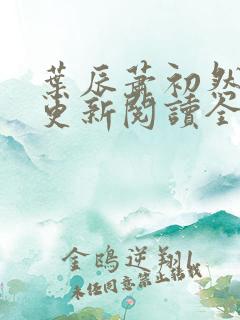 葉辰蕭初然
更新閱讀全
金鴟逆翔
未經同意禁止轉載